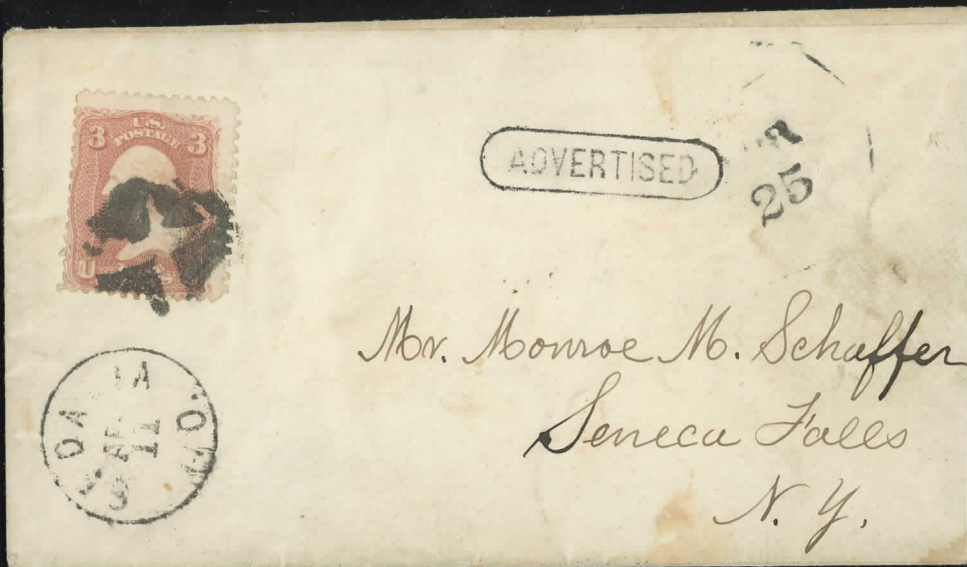 3 U.S. 3
POSTAGE
U
ADVERTISED
25
Mr. Monroe M. Schaffer
Seneca Falls
N. Y.
11